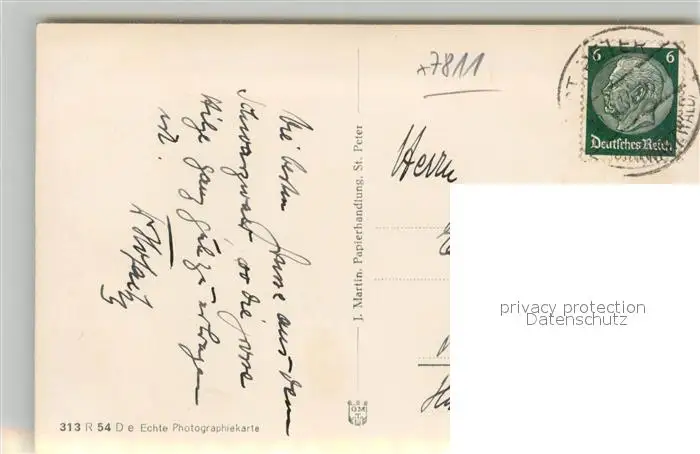 x7811
ST. PETER
SCHWARZWALD
6 6
Deutsches Reich
Die besten Grüsse aus dem
Schwarzwald wo die grosse
Hitze ganz gut zu ertragen
ist.
Herrn
J. Martin, Papierhandlung, St. Peter
GM
313 R 54 D e Echte Photographiekarte
privacy protection
Datenschutz